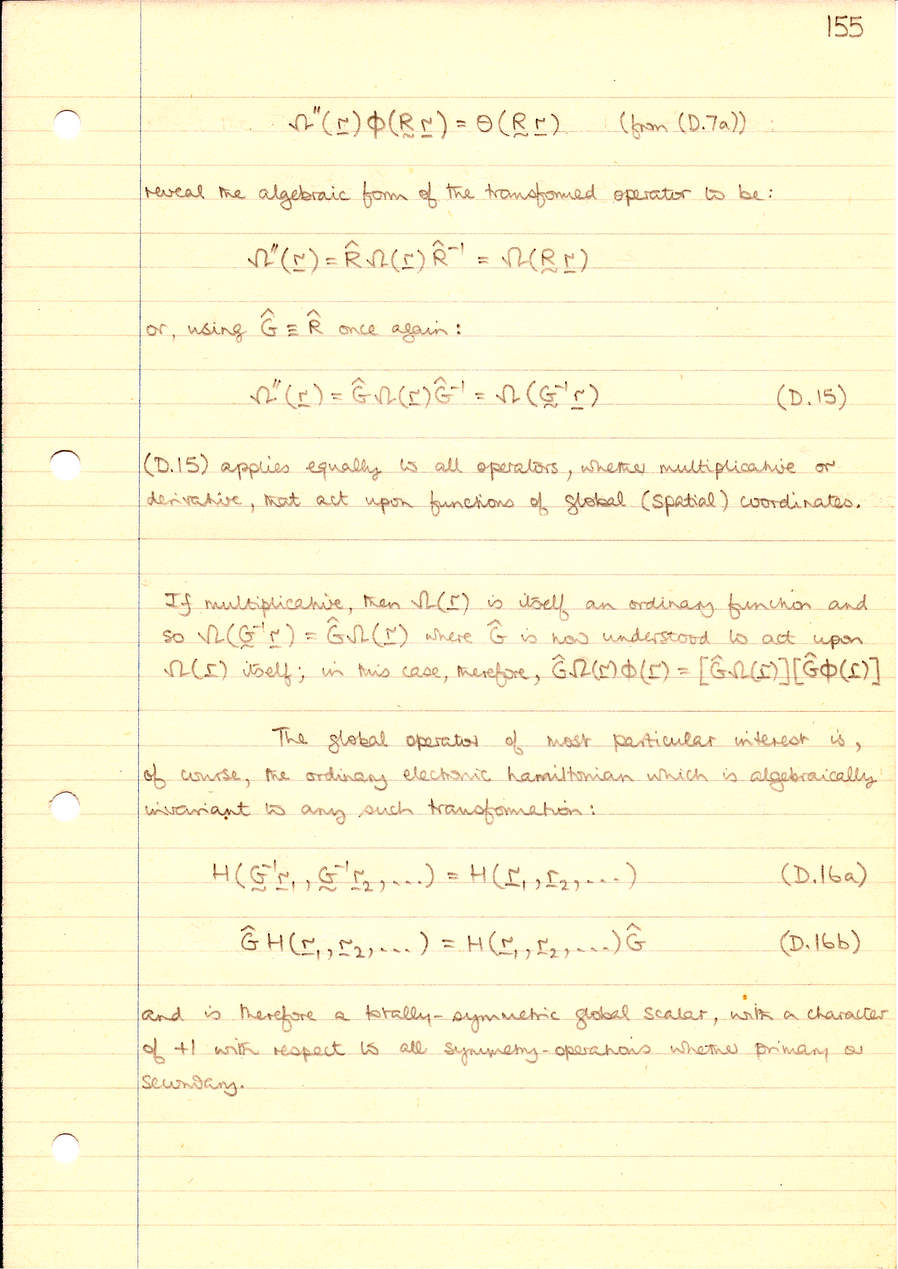 155
Ω″(r) ϕ(R r) = θ(R r) (from (D.7a))
reveal the algebraic form of the transformed operator to be:
Ω″(r) = R̂ Ω(r) R̂⁻¹ = Ω(R r)
or, using Ĝ ≡ R̂ once again:
Ω″(r) = Ĝ Ω(r) Ĝ⁻¹ = Ω(G⁻¹ r) (D.15)
(D.15) applies equally to all operators, whether multiplicative or
derivative, that act upon functions of global (spatial) coordinates.
If multiplicative, then Ω(r) is itself an ordinary function and
so Ω(G⁻¹ r) = ĜΩ(r) where Ĝ is now understood to act upon
Ω(r) itself; in this case, therefore, ĜΩ(r)ϕ(r) = [ĜΩ(r)][Ĝϕ(r)]
The global operator of most particular interest is,
of course, the ordinary electronic hamiltonian which is algebraically
invariant to any such transformation:
H(G⁻¹r₁, G⁻¹r₂, ...) = H(r₁, r₂, ...) (D.16a)
Ĝ H(r₁, r₂, ...) = H(r₁, r₂, ...) Ĝ (D.16b)
and is therefore a totally-symmetric global scalar, with a character
of +1 with respect to all symmetry-operations whether primary or
secondary.